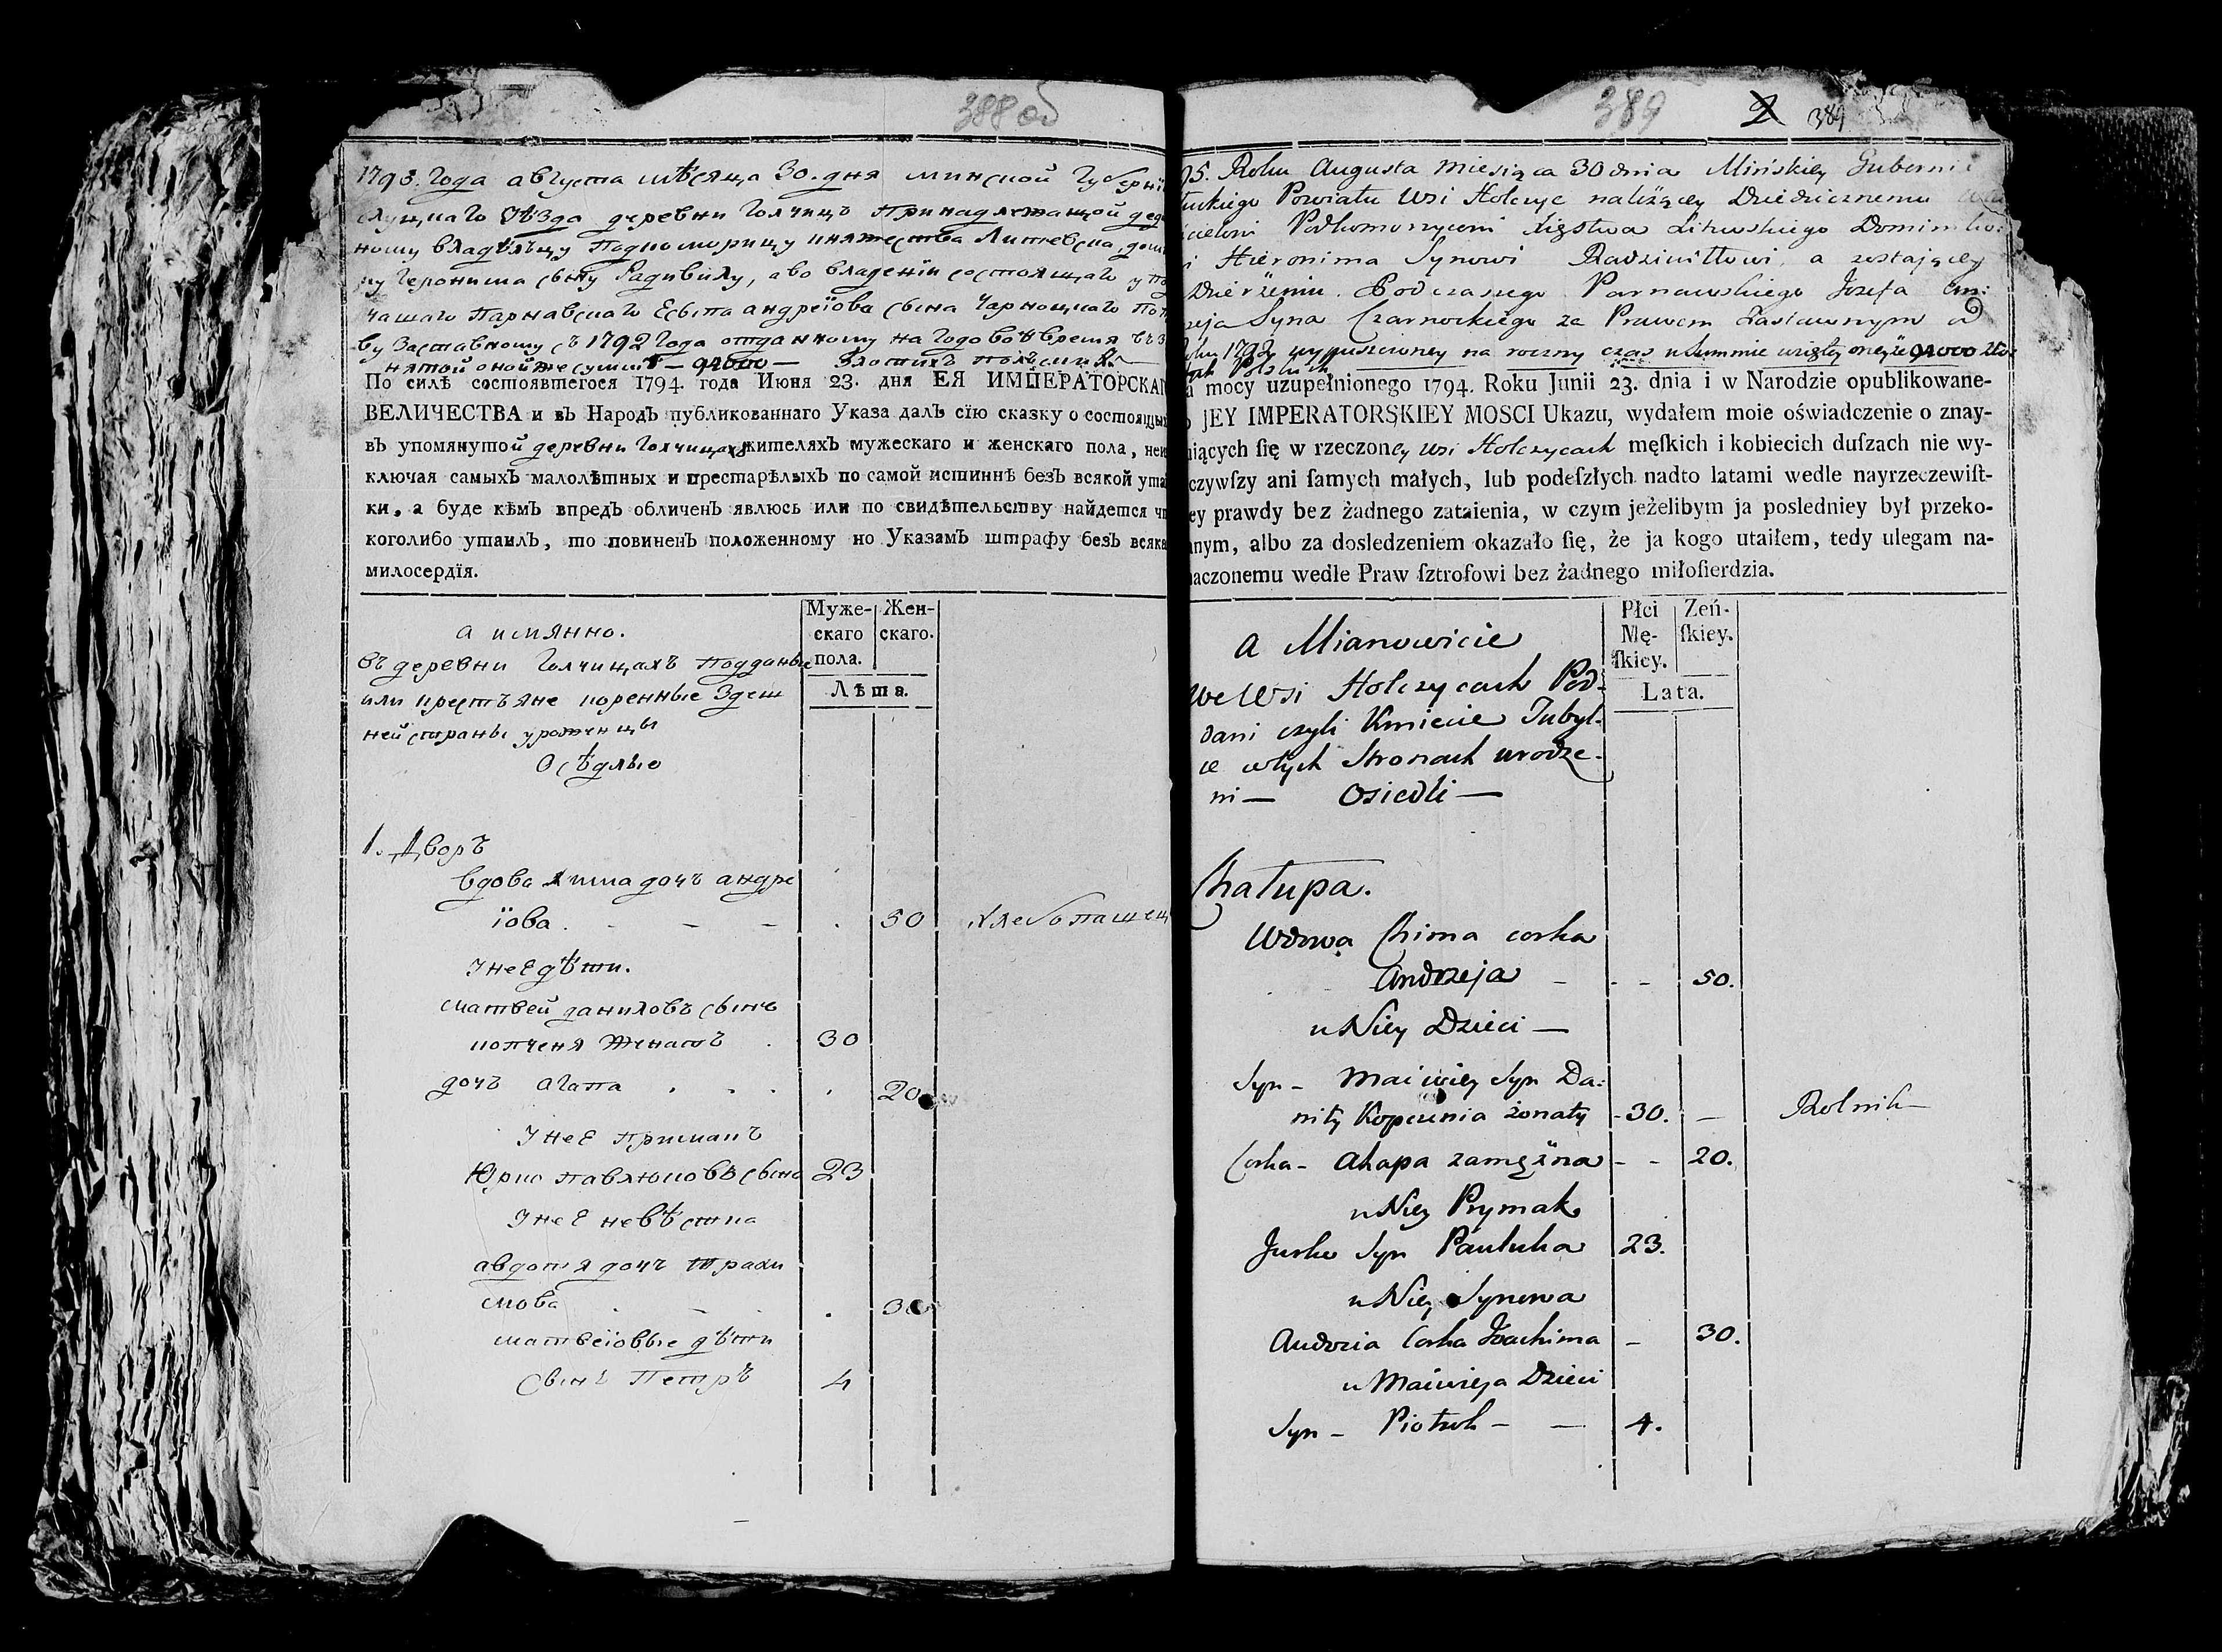 388 об
1795. Года августа мѣсяца 30. дня минской Губерніи
слуцкаго Уѣзда деревни Голчицъ Принадлежащой деди
ному владѣльцу Подкоморицу княжества Литевска, доми
ку Геронима сыну Радивилу, а во владеніи состоящаго у по
чашаго Парнавскаго Есыпа андреіова сына Чарноцкаго По
ву Заставному съ 1792 Года отданному на Годовоѣ время въ
нятой оной же суммѣ — 92000 — Злотихъ полскихъ
По силѣ состоявшегося 1794 года Июня 23. дня ЕЯ ИМПЕРАТОРСКАГ
ВЕЛИЧЕСТВА и въ Народъ публикованнаго Указа далъ сїю сказку о состоящыхъ
въ упомянутой деревни Голчицахъ жителяхъ мужескаго и женскаго пола, неи
ключая самыхъ малолѣтныхъ и престарѣлыхъ по самой истиннѣ безъ всякой ута
ки, а буде кѣмъ впредъ обличенъ явлюсь или по свидѣтельству найдется чт
коголибо утаилъ, то повиненъ положенному по Указамъ штрафу безъ всяка
милосердїя.
Муже-
скаго
пола.
Жен-
скаго.
Лѣта.
а имянно.
въ деревни Голчицахъ Подданые
или престъяне коренные Здеш
ней страны уроженцы
Осѣдлые
1. Дворъ
вдова Хима дочъ андре
іова . - - . 50 Хлебопашец
У неЕ дѣти.
Матвей даниловъ сынъ
копченя Женатъ . 30
дочъ агапа . . . . 20
У неЕ примакъ
Юрко павлюковъ сынъ 23
У неЕ невѣстка
авдотя дочъ трахи
мова . - . . 30
матвеіовые дѣти
Сынъ Петръ 4
389 2 389
95. Roku Augusta Miesiąca 30 dnia Mińskiey Gubernii
łuckiego Powiatu Wsi Holczyc należącey Dziedzicznemu
cielowi Podkomorzycowi Xięstwa Litewskiego Dominiko:
i Hieronima Synowi Radziwiłłowi, a zostającey
Dzierżeniu Podczaszego Parnawskiego Jozefa An:
zeja Syna Czarnockiego za Prawem Zastawnym od
Roku 1792 wypuszczoney na roczny czas w Summie wziętey oneyże 92000 Zło:
tych Polskich
a mocy uzupełnionego 1794. Roku Junii 23. dnia i w Narodzie opublikowane-
o JEY IMPERATORSKIEY MOSCI Ukazu, wydałem moie oświadczenie o znay-
uiących ſię w rzeczoney wsi Holczycach męſkich i kobiecich duſzach nie wy-
czywſzy ani ſamych małych, lub podeſzłych nadto latami wedle nayrzeczewiſt-
ey prawdy bez żadnego zataienia, w czym jeżelibym ja posledniey był przeko-
anym, albo za dosledzeniem okazało ſię, że ja kogo utaiłem, tedy ulegam na-
aczonemu wedle Praw ſztrofowi bez żadnego miłoſierdzia.
Płci
Mę-
ſkiey.
Zeń-
ſkiey.
Lata.
a Mianowicie
we Wsi Holczycach Pod-
dani czyli Kmiecie Tubyl-
ce w tych Stronach urodze-
ni — Osiedli —
Chałupa.
Wdowa Chima corka
Andrzeja - - - 50.
u Niey Dzieci —
Syn - Maciwiey Syn Da:
niły Kopcienia żonaty - 30. — Rolnik
Corka - Ahapa zamężna - - 20.
u Niey Prymak
Jurko Syn Pauluka 23.
u Niey Synowa
Audocia Corka Joachima - 30.
u Maciwieja Dzieci
Syn - Piotruk - — 4.